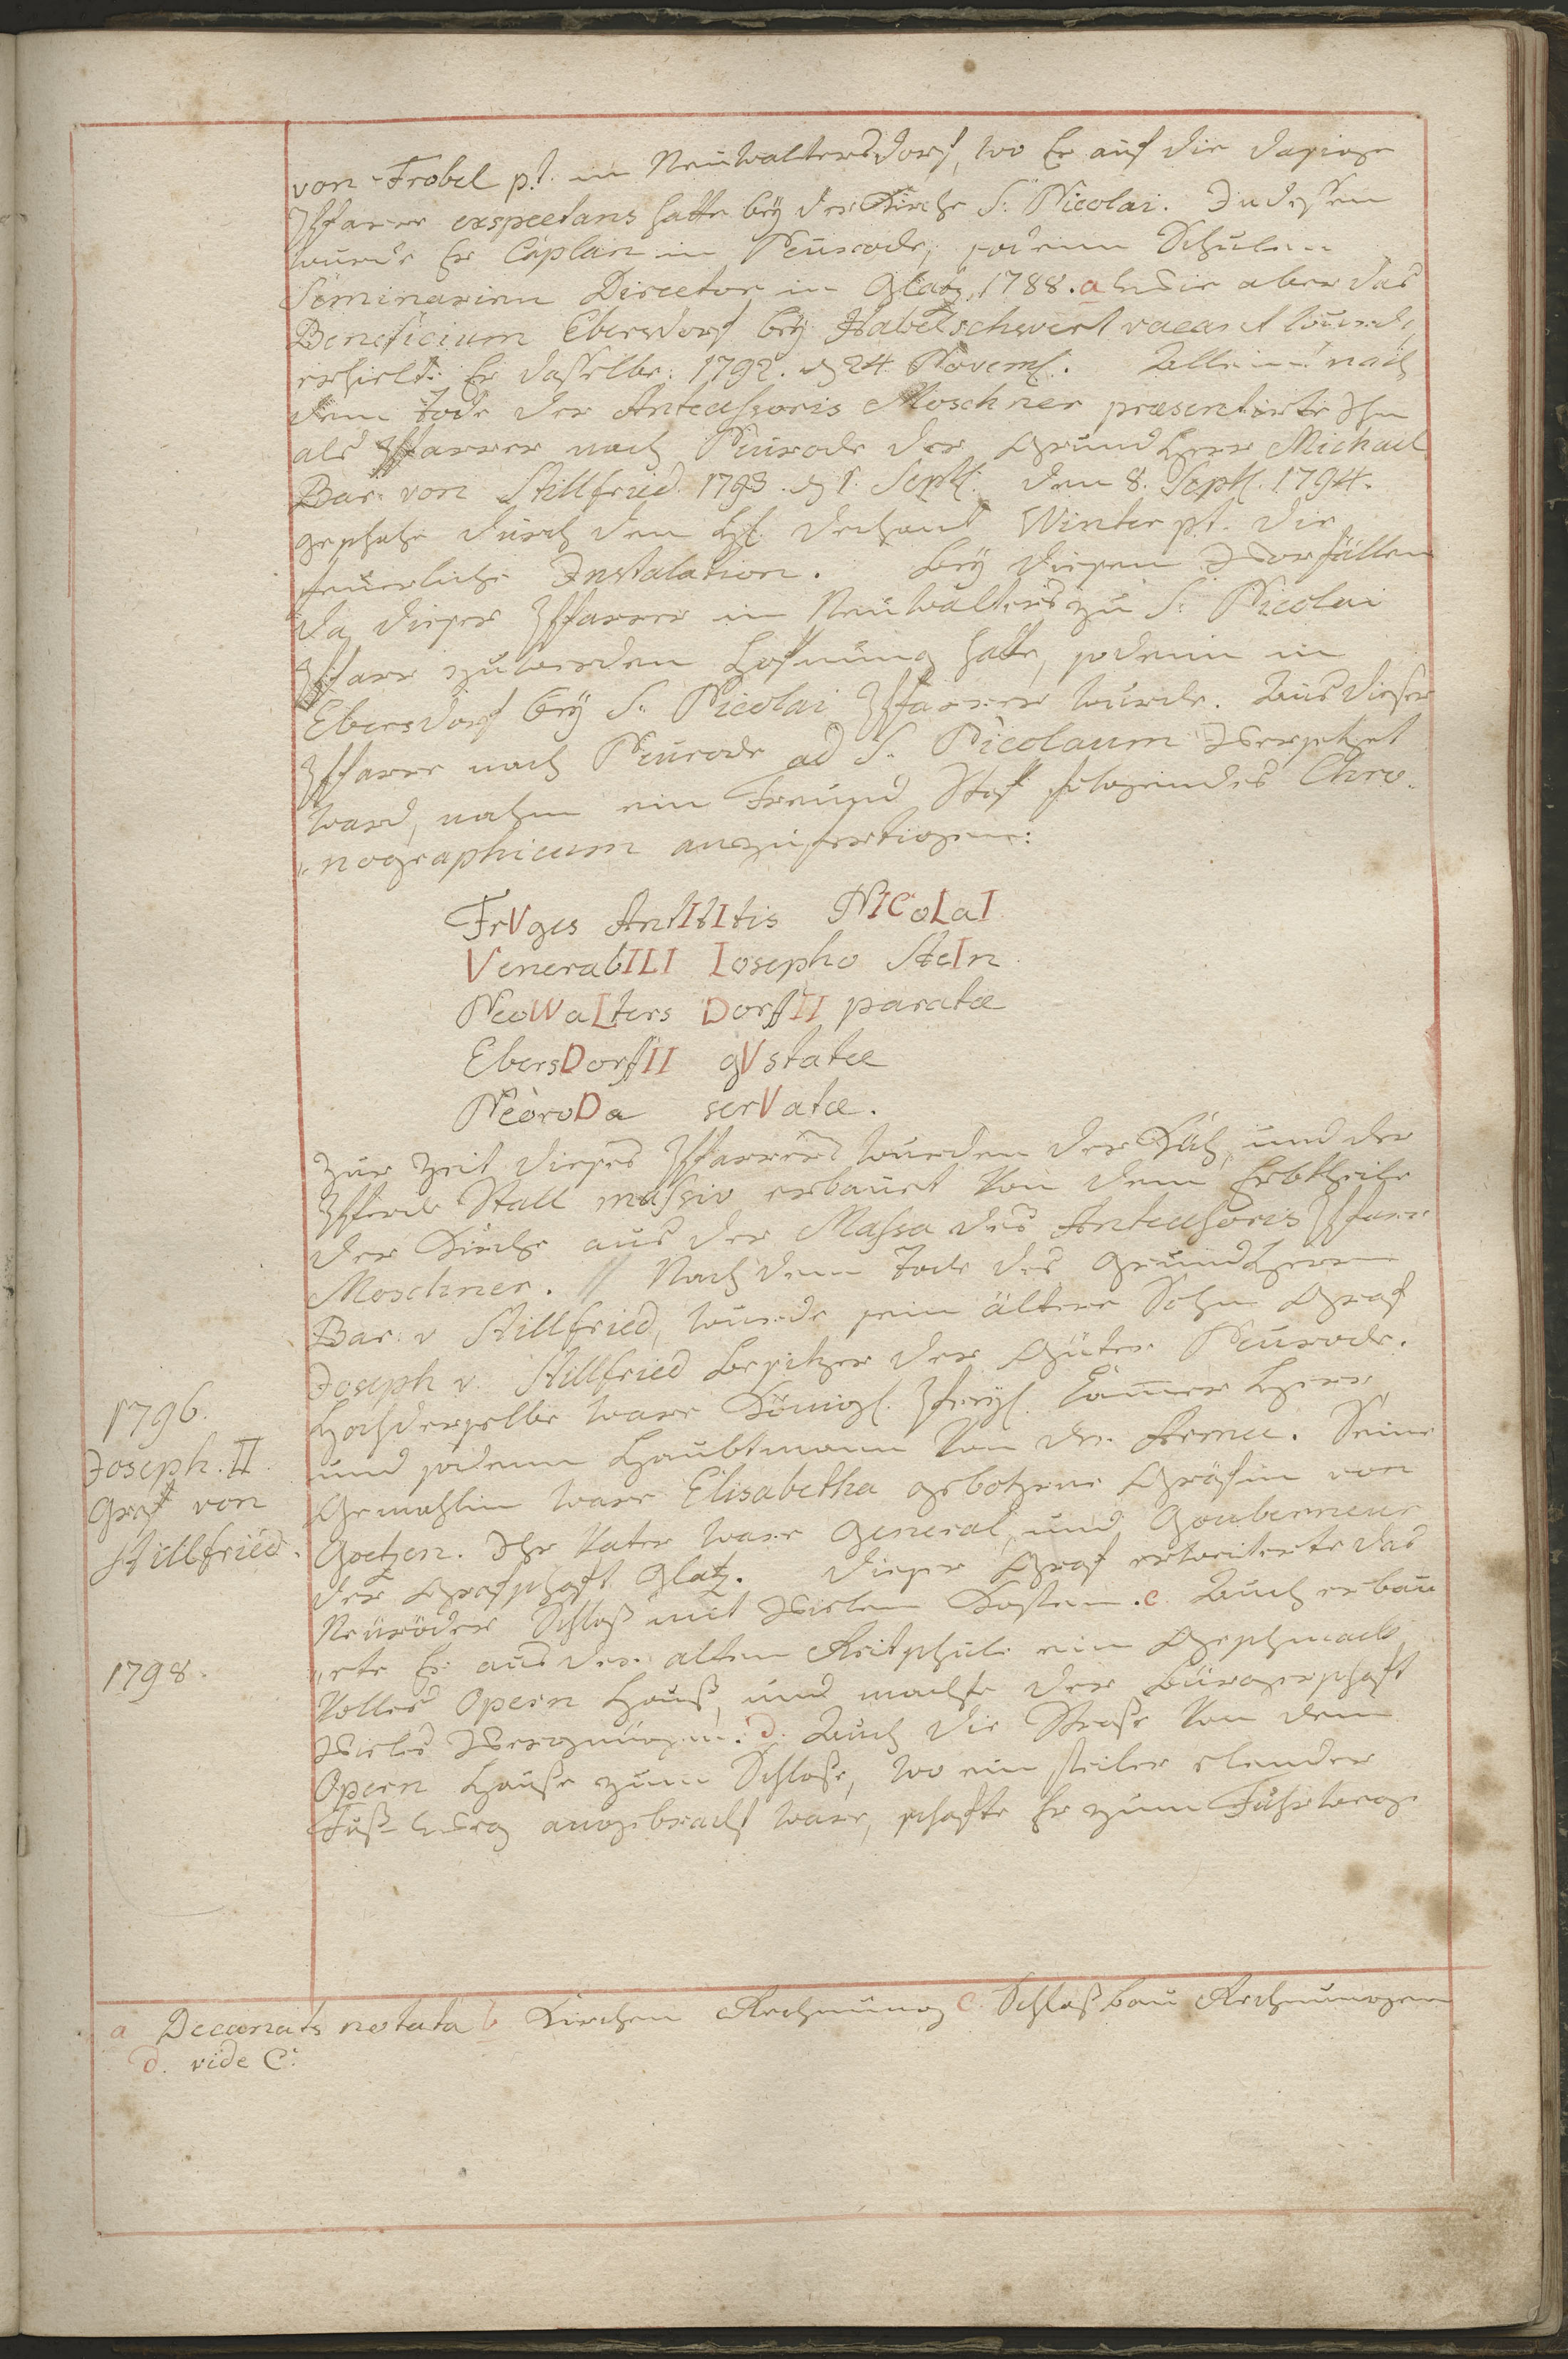 von Frobel p.t. in Neuwaltersdorf, wo Er auf die dasige
Pfarre exspectans hatte bey der Kirche S. Nicolai. Indessen
wurde Er Caplan in Neurode, sodenn Schulen
Seminarien Director in Glatz, 1788. a als Sie aber das
Beneficium Ebersdorf bey Habelschwert vacant wurde,
erhielt Er dasselbe: 1792. d 24 Novemb. Allein nach
dem Tode des Antecessoris Moschner praesentirte Ihn
als Pfarrer nach Neurode der Grund Herr Michael
Bar: von Stillfried. 1793. d 1. Septb. Den 8. Septb. 1794.
geschahe durch den H. Dechant Winter p.t. die
feuerliche Instalation. Bey diesen Vorfällen
da dieser Pfarrer in Neuwalters zu S. Nicolai
Pfarr zu werden Hofnung hatte, sodenn in
Ebersdorf bey S. Nicolai Pfarrer wurde. Aus dieser
Pfarre nach Neurode ad S. Nicolaum Versetzt
ward, nahm ein Freund Stof folgendes Chro-
"nographicum anzufertigen:
FrVges AntIstItis NICoLaI
VenerabILI Iosepho SteIn
NeoWaLters DorffII paratae
EbersDorffII gVstatae
NeoroDa serVatae.
Zur Zeit dieses Pfarrers wurden der Küh, und der
Pferde Stall massiv erbauet von dem Erbtheile
der Kirche aus der Massa des Antecessoris Pfarr
Moschner. // Nach dem Tode des Grund Herrn
Bar: v Stillfried, wurde sein ältere Sohn Graf
Joseph v. Stillfried Besitzer der Güter Neurode.
Hochderselbe ware Königl. Preyß. Cammer Herr
und sodenn Haubtmann von der Armee. Seine
1796.
Joseph. II.
Graf von
Stillfried.
Gemahlin ware Elisabetha gebohrne Gräfin von
Goetzen. Ihr Vater ware General, und Gouberneur
der Grafschaft Glatz. Dieser Graf erweiterte das
Neuröder Schloß mit Vielen Kosten. c. Auch erbau
"ete Er aus der alten Reitschule ein Geschmack
1798.
Volles Opern Hauß, und machte der Bürgerschaft
Vieles Vergnügen. d. Auch die Straße von dem
Opern Hause zum Schloße, wo ein steiler elender
Fuß-Weg angebracht ware, schafte Er zum Fuhrwege
a Decanats notata b Kirchen Rechnung c. Schloßbau Rechnungen
d. vide C.